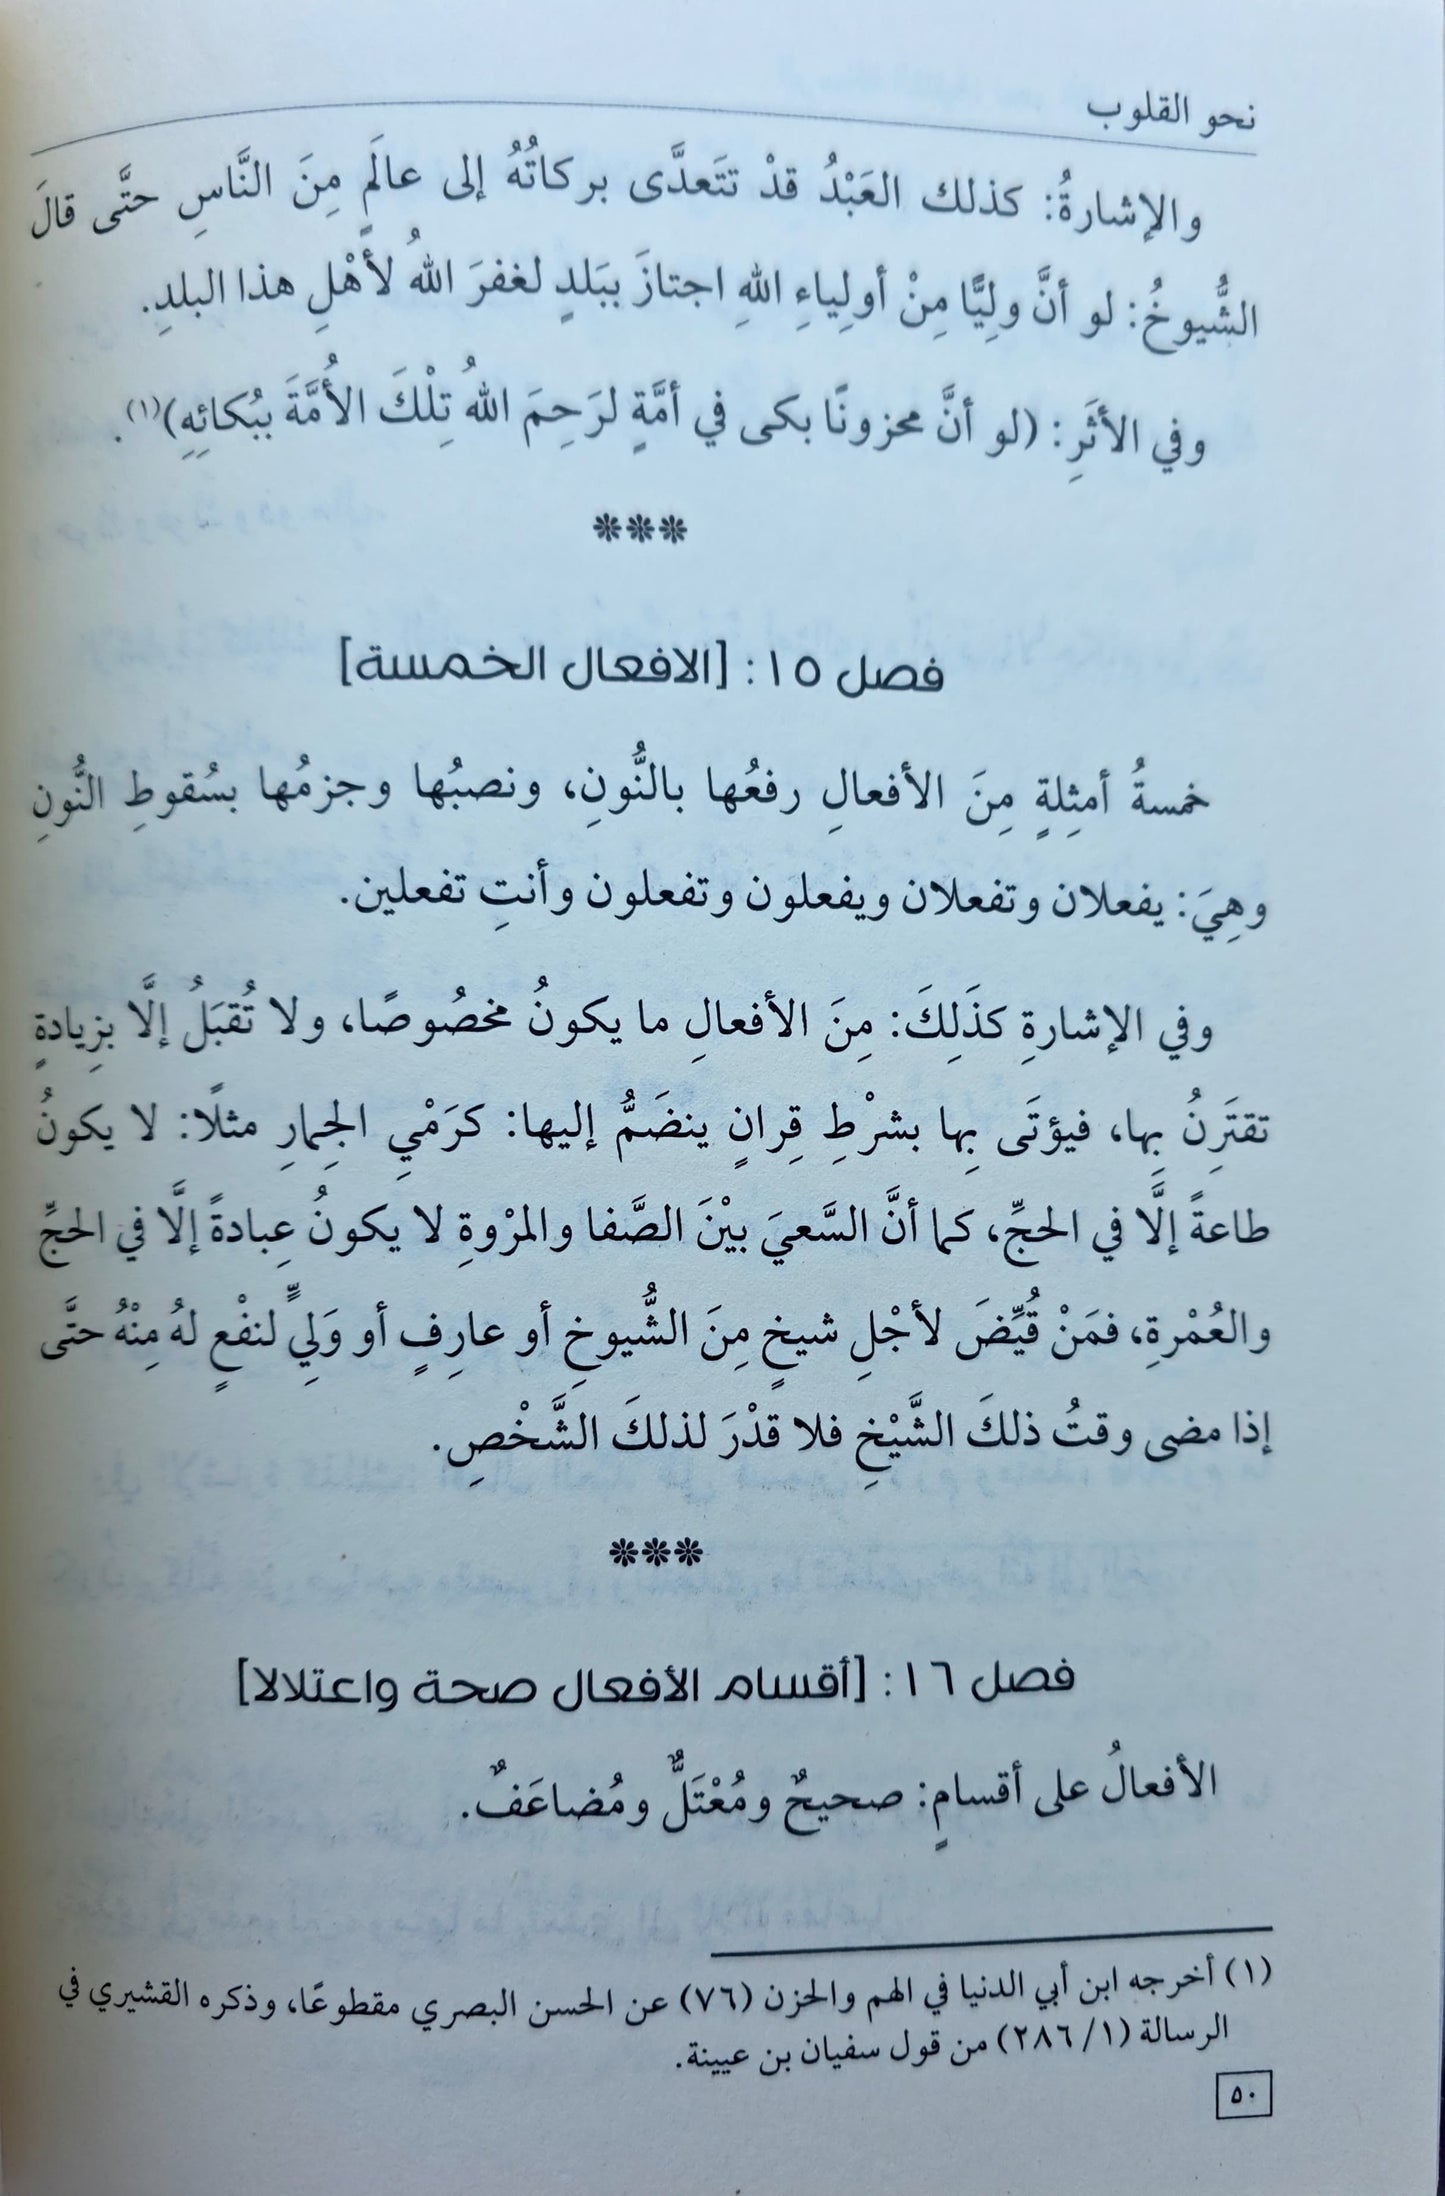 نحو القلوب
والإشارةُ: كذلك العَبْدُ قدْ تتَعدَّى بركاتُهُ إلى عالَمٍ مِنَ النَّاسِ حتَّى قالَ
الشُّيوخُ: لو أنَّ ولِيًّا مِنْ أولِياءِ اللهِ اجتازَ ببَلدٍ لغفرَ اللهُ لأهْلِ هذا البلدِ.
وفي الأثَرِ: (لو أنَّ محزونًا بكى في أمَّةٍ لرَحِمَ اللهُ تِلْكَ الأُمَّةَ ببُكائِهِ)(١).
***
فصل ١٥: [الافعال الخمسة]
خمسةُ أمثِلةٍ مِنَ الأفعالِ رفعُها بالنُّونِ، ونصبُها وجزمُها بسُقوطِ النُّونِ
وهِيَ: يفعلان وتفعلان ويفعلون وتفعلون وأنتِ تفعلين.
وفي الإشارةِ كذَلِكَ: مِنَ الأفعالِ ما يكونُ مخصُوصًا، ولا تُقبَلُ إلَّا بزِيادةٍ
تقتَرِنُ بِها، فيؤتَى بِها بشرْطِ قِرانٍ ينضَمُّ إليها: كرَمْيِ الجِمارِ مثلًا: لا يكونُ
طاعةً إلَّا في الحجِّ، كما أنَّ السَّعيَ بيْنَ الصَّفا والمرْوةِ لا يكونُ عِبادةً إلَّا في الحجِّ
والعُمْرةِ، فمَنْ قُيِّضَ لأجْلِ شيخٍ مِنَ الشُّيوخِ أو عارِفٍ أو وَليٍّ لنفْعٍ لهُ مِنْهُ حتَّى
إذا مضى وقتُ ذلكَ الشَّيْخِ فلا قدْرَ لذلكَ الشَّخْصِ.
***
فصل ١٦: [أقسام الأفعال صحة واعتلالا]
الأفعالُ على أقسامٍ: صحيحٌ ومُعْتَلٌّ ومُضاعَفٌ.
(١) أخرجه ابن أبي الدنيا في الهم والحزن (٧٦) عن الحسن البصري مقطوعًا، وذكره القشيري في
الرسالة (١/ ٢٨٦) من قول سفيان بن عيينة.
٥٠